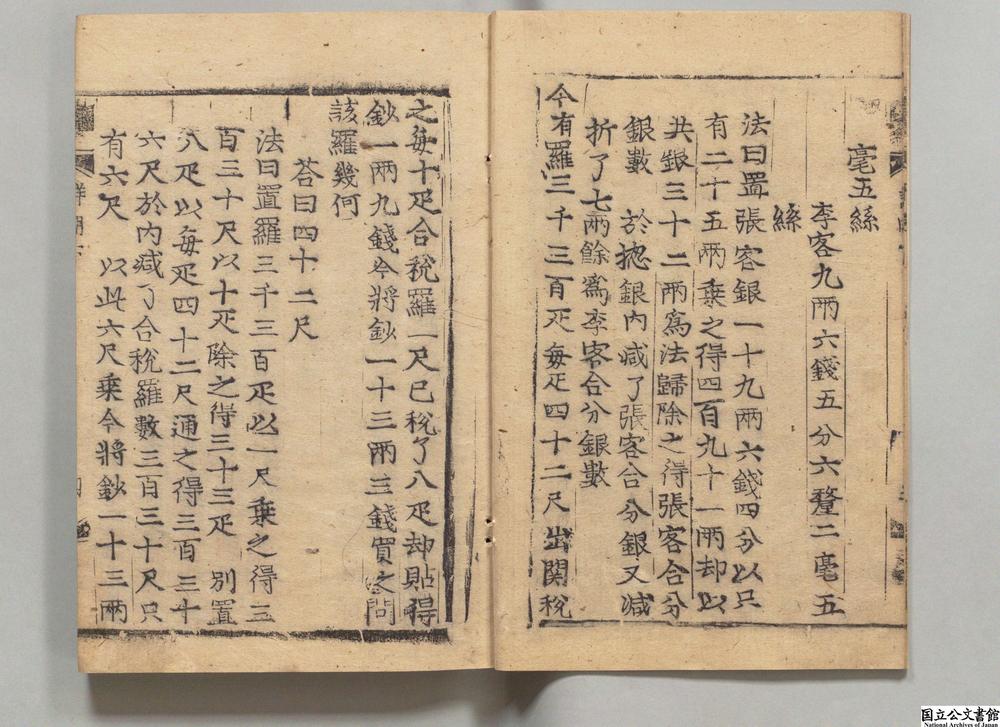 毫五絲
李客九兩六錢五分六釐二毫五
絲
法曰置張客銀一十九兩六錢四分以只
有二十五兩乗之得四百九十一兩却以
共銀三十二兩爲法歸除之得張客合分
銀數　於捴銀内减了張客合分銀又减
折了七兩餘爲李客合分銀數
今有羅三千三百疋每疋四十二尺出関稅
之每十疋合稅羅一尺已稅了八疋却貼得
鈔一兩九錢令將鈔一十三兩三錢買之問
該羅幾何
荅曰四十二尺
法曰置羅三千三百疋以一尺乗之得三
百三十尺以十疋除之得三十三疋　別置
八疋以每疋四十二尺通之得三百三十
六尺於内减了合稅羅數三百三十尺只
有六尺　以此六尺乗令將鈔一十三兩
国立公文書館
National Archives of Japan